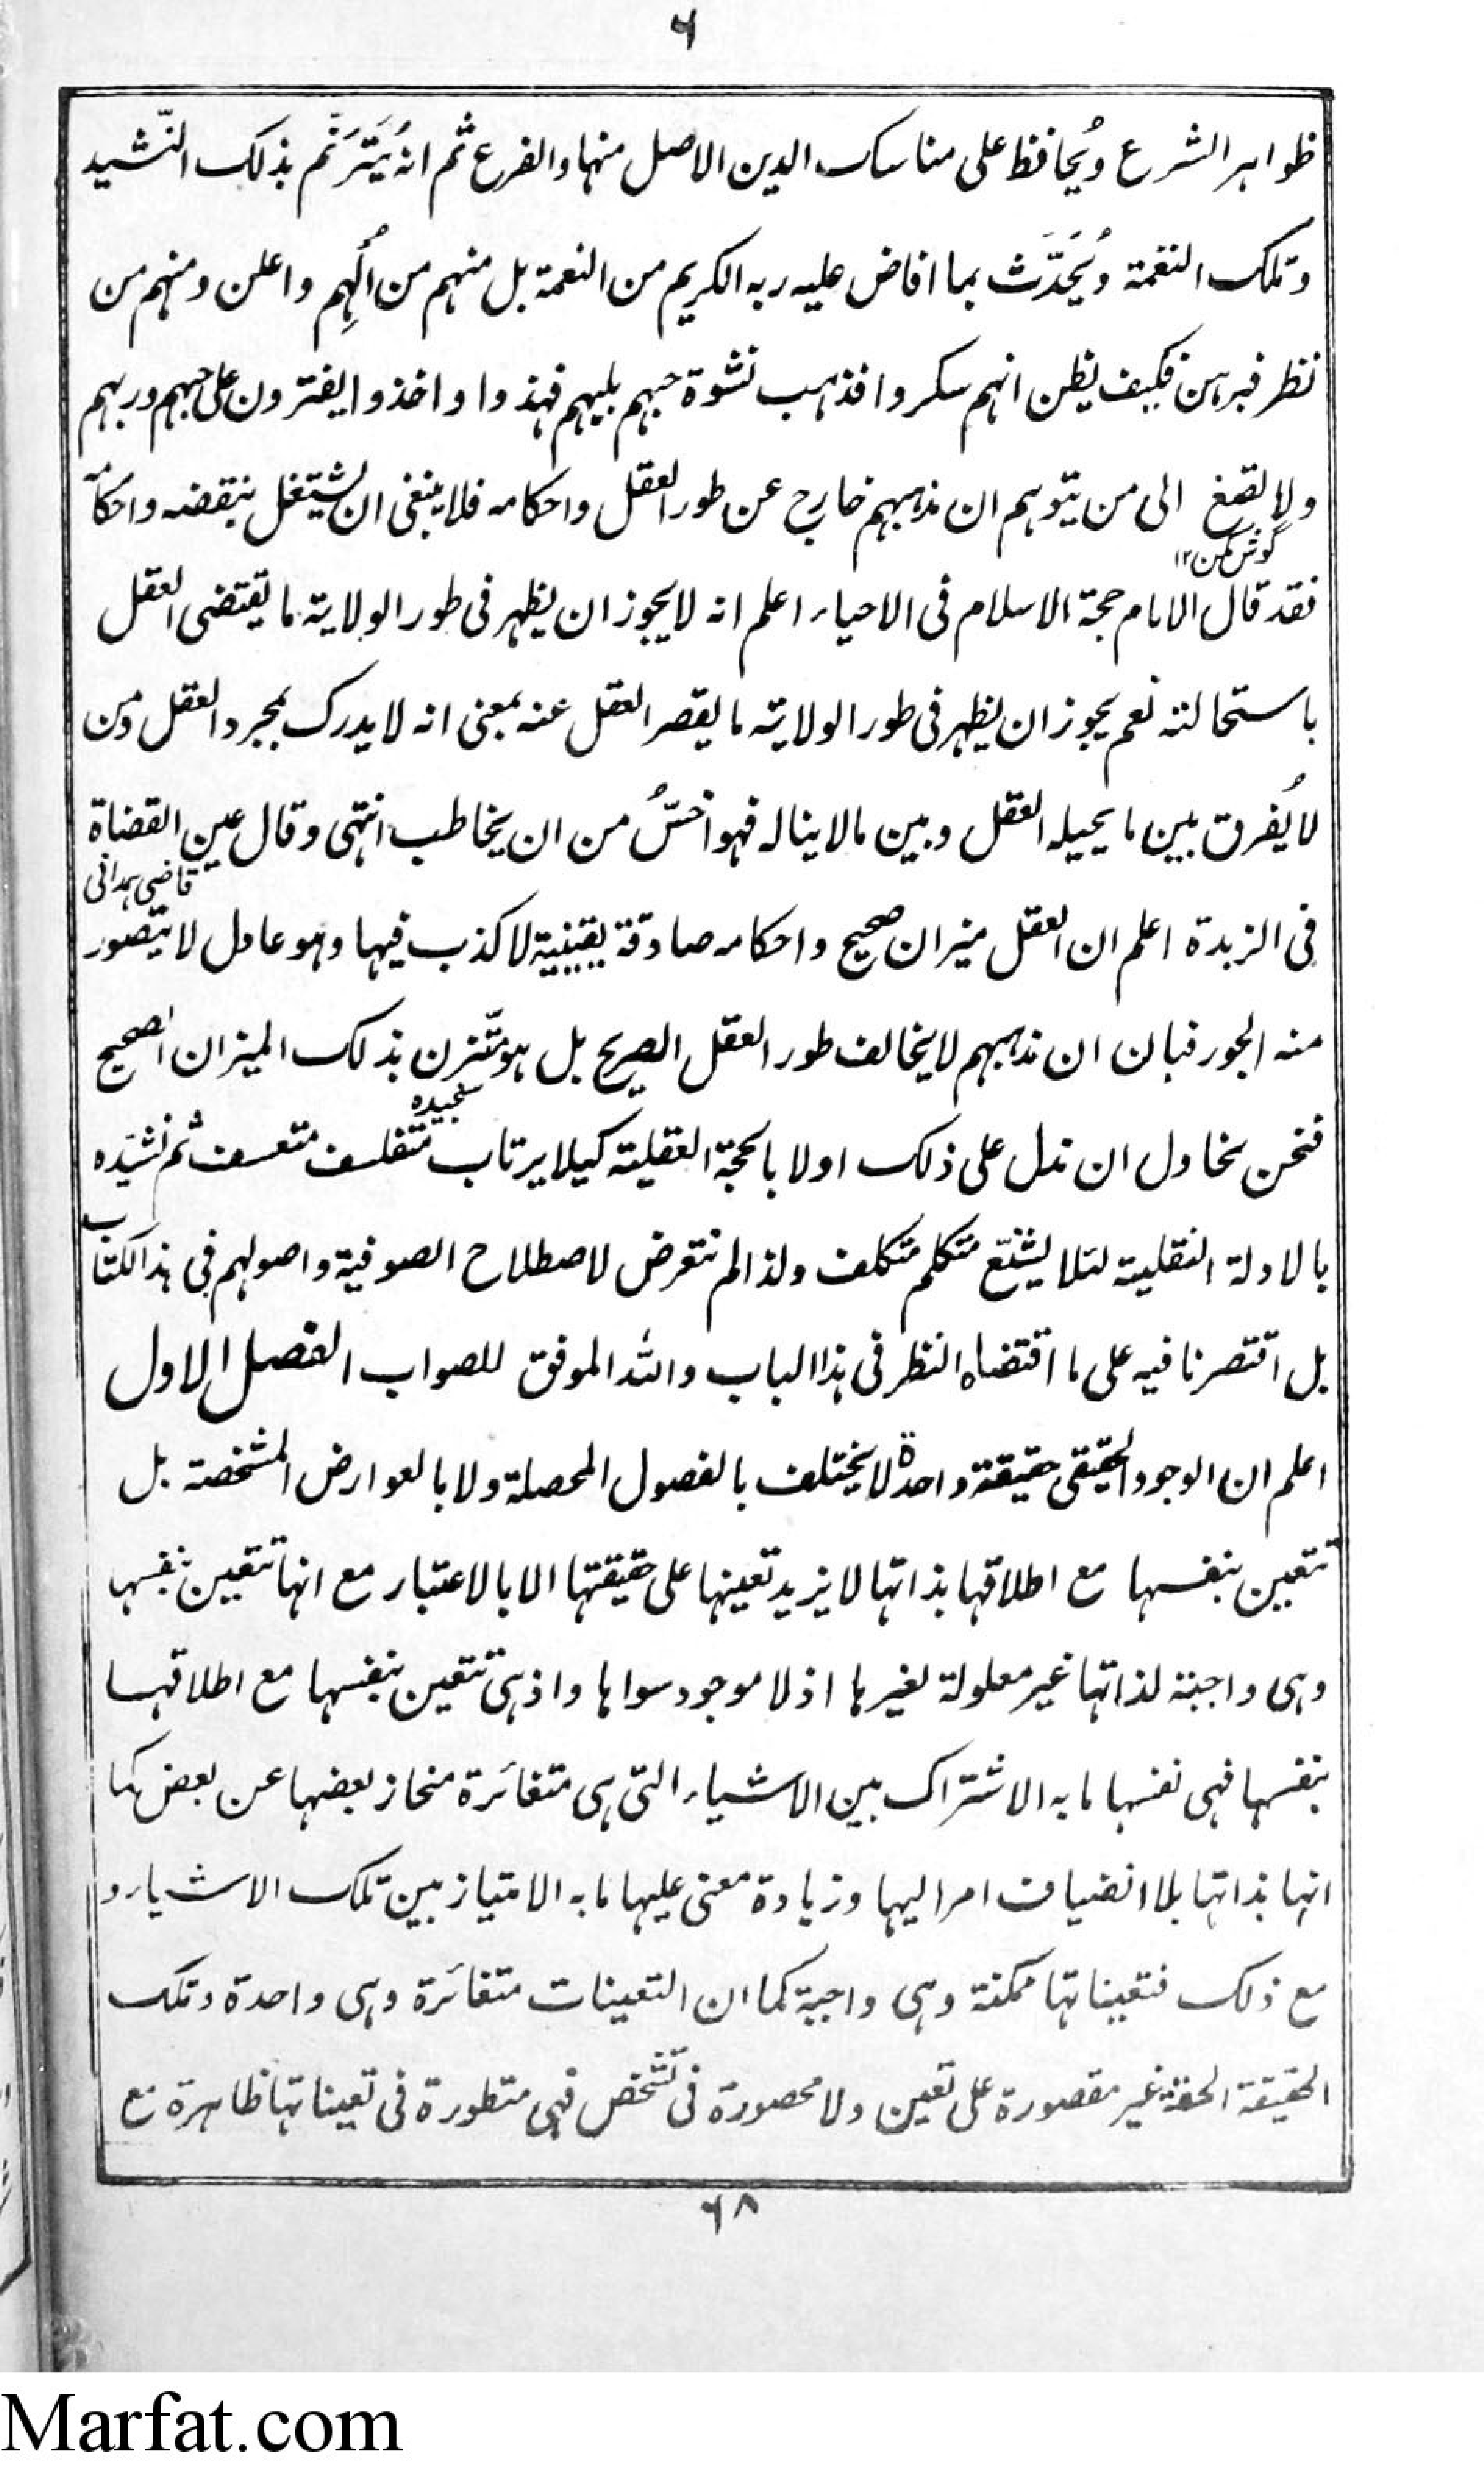 ۶
ظواہر الشرع ویُحافظ علی مناسک الدین الاصل منہا والفرع ثم انہ یَتَرَنَّم بذلک النَّشید
وتلک النغمۃ ویُحَدِّث بما افاض علیہ ربہ الکریم من النعمۃ بل منہم من اُلہِم واعلن ومنہم من
نظر فبرہن فکیف یظن انہم سکروا فذہب نشوۃ حبہم بلبہم فہذوا واخذوا یفترون علی حبہم وربہم
ولا یصغ الی من یتوہم ان مذہبہم خارج عن طور العقل واحکامہ فلا ینبغی ان یشتغل بنقضہ واحکامہ
گوش مکن ۱۲
فقد قال الامام حجۃ الاسلام فی الاحیاء اعلم انہ لا یجوز ان یظہر فی طور الولایۃ ما یقتضی العقل
باستحالتہ نعم یجوز ان یظہر فی طور الولایۃ ما یقصر العقل عنہ بمعنی انہ لا یدرک بمجرد العقل ومن
لا یُفرق بین ما یحیلہ العقل وبین مالا ینالہ فہو اخسُّ من ان یخاطب انتہی وقال عین القضاۃ
قاضی ہمدانی
فی الزبدۃ اعلم ان العقل میزان صحیح واحکامہ صادقۃ یقینیۃ لا کذب فیہا وہو عادل لا یتصور
منہ الجور فبان ان مذہبہم لا یخالف طور العقل الصریح بل ہو متّزن بذلک المیزان الصحیح
سنجیدہ
فنحن نحاول ان ندل علی ذلک اولا بالحجۃ العقلیۃ کیلا یرتاب متفلسف متعسف ثم نشیدہ
بالادلۃ النقلیۃ لئلا یشنّع متکلم متکلف ولذا لم نتعرض لاصطلاح الصوفیۃ واصولہم فی ہذا الکتاب
بل اقتصرنا فیہ علی ما اقتضاہ النظر فی ہذا الباب واللہ الموفق للصواب الفصل الاول
اعلم ان الوجود الحقیقی حقیقۃ واحدۃ لا یختلف بالفصول المحصلۃ ولا بالعوارض المشخصۃ بل
تتعین بنفسہا مع اطلاقہا بذاتہا لا یزید تعینہا علی حقیقتہا الا بالاعتبار مع انہا تتعین بنفسہا
وہی واجبۃ لذاتہا غیر معلولۃ لغیرہا اذ لا موجود سواہا واذ ہی تتعین بنفسہا مع اطلاقہا
بنفسہا فہی نفسہا ما بہ الاشتراک بین الاشیاء التی ہی متغائرۃ منحاز بعضہا عن بعض کما
انہا بذاتہا بلا انضیاف امر الیہا وزیادۃ معنی علیہا ما بہ الامتیاز بین تلک الاشیاء و
مع ذلک فتعیناتہا ممکنۃ وہی واجبۃ کما ان التعینات متغائرۃ وہی واحدۃ وتلک
الحقیقۃ الحقۃ غیر مقصورۃ علی تعین ولا محصورۃ فی تشخص فہی متطورۃ فی تعیناتہا ظاہرۃ مع
۶۸
Marfat.com